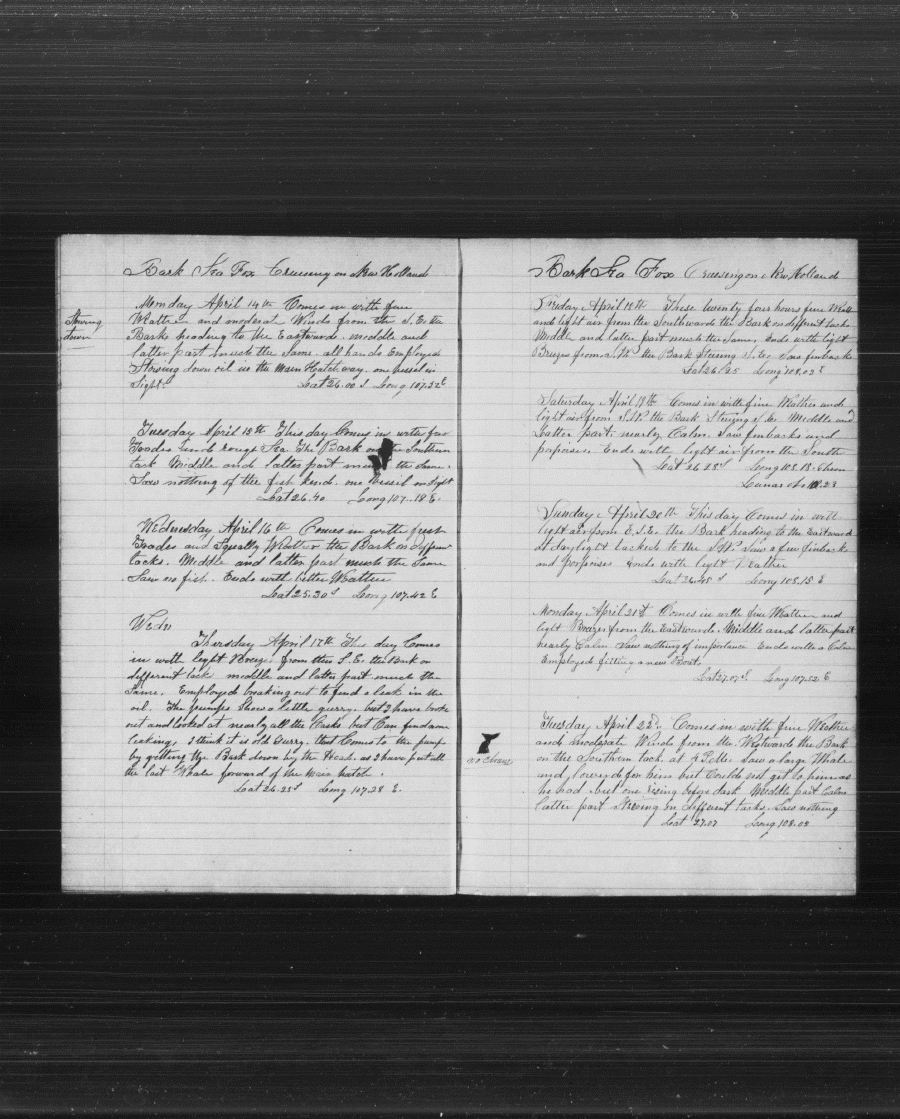 Bark Sea Fox Cruising on New Holland
Monday April 14th Comes in with fine
Stowing
down
Weather and moderate Winds from the S.E. the
Bark heading to the Eastward. middle and
latter part much the Same. all hands Employed
Stowing down oil in the Main Hatchway. one vessel in
Sight. Lat 26.00 S Long 107.32 E
Tuesday April 15th This day Comes in with
Trades and rough Sea The Bark on the Southern
tack Middle and latter part much the Same.
Saw nothing of the fish kind. one vessel in Sight
Lat 26.40 Long 107.18 E.
Wednesday April 16th Comes in with fresh
Trades and Squally Weather the Bark on differen
tacks. Middle and latter part much the Same
Saw no fish. Ends with better Weather
Lat 25.30 S Long 107.42 E
Wedn
Thursday April 17th This day Comes
in with light Breeze from the S.E. the Bark on
different tack middle and latter part much the
Same. Employed breaking out to find a leak in the
oil. The pumps Show a little gurry. but I have broke
out and looked at nearly all the Casks but Can find none
leaking, I think it is old Gurry that Comes to the pump
by getting the Bark down by the Head. as I have put all
the last Whale forward of the Main hatch.
Lat 26.25 S Long 107.28 E.
Bark Sea Fox Cruising on New Holland
Friday April 18th These twenty four hours fine Weath
and light air from the Southwards the Bark on diffrent tacks
Middle and latter part much the Same, Ends with light
Brezes from S.W. the Bark Steering S.E. Saw finbacks
Lat 26.25 Long 108.03 E
Saturday April 19th Comes in with fine Weather and
light air from S.W. the Bark Steering S.E. Middle and
Latter part nearly Calm. Saw finbacks and
poposes. Ends with light air from the South
Lat 26.28 S Long 108.18 Chron
Lunar
Sunday April 20th This day Comes in with
light air from E.S.E. the Bark heading to the Eastward
at daylight tacked to the S.W. Saw a few finbacks
and porposes Ends with light Weather
Lat 26.45 S Long 108.15 E
Monday April 21st Comes in with fine Weather and
light Brezes from the Eastwards. Middle and latter part
nearly Calm Saw nothing of importance Ends with a Calm
Employed fitting a new Boat.
Lat 27.07 S. Long 107.52 E
Tuesday April 22d. Comes in with fine Weather
and moderate Winds from the Westwards the Bark
on the Southern tack. at 4 P.M. Saw a large Whale
no Chance
and lowered for him but Could not get to him as
he had but one rising before dark Middle part Calm
latter part Steering on different tacks. Saw nothing
Lat 27.07 Long 108.09